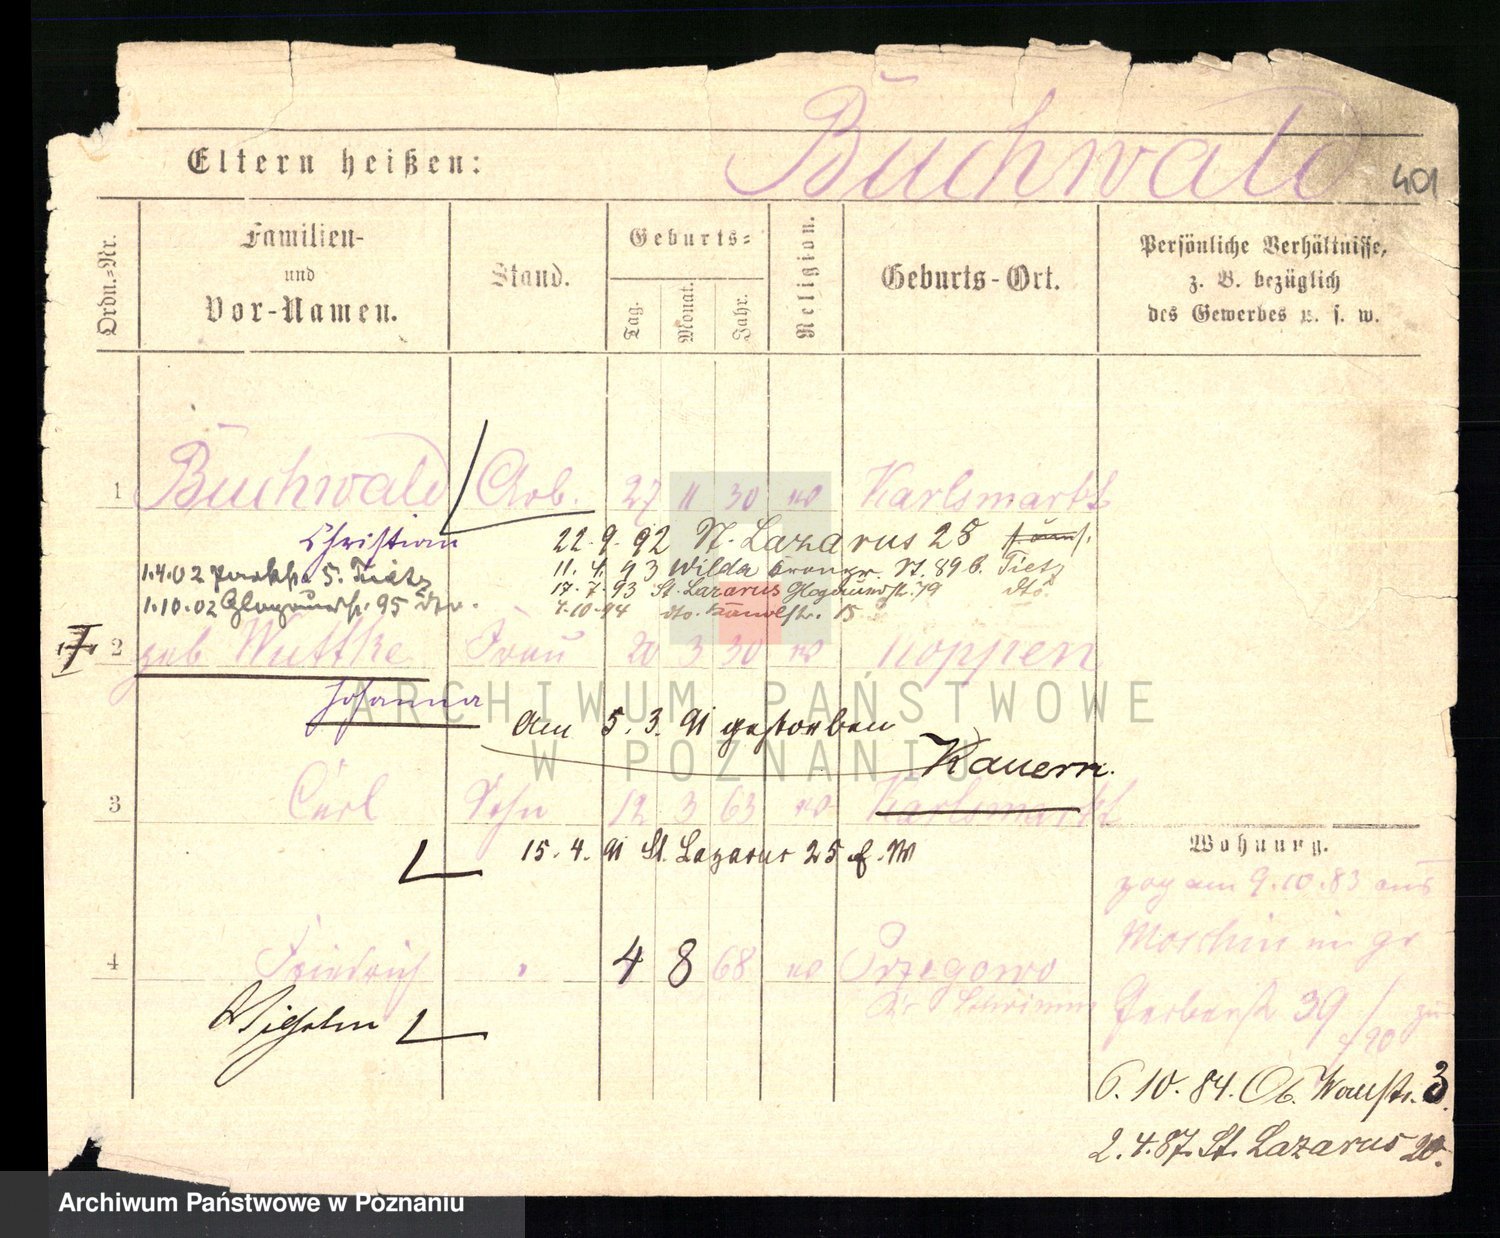 Buchwald
401
Eltern heißen:
Ordn.=Nr.
Familien-
und
Vor-Namen.
Stand.
Geburts=
Tag.
Monat.
Jahr.
Religion.
Geburts-Ort.
Persönliche Verhältnisse,
z. B. bezüglich
des Gewerbes u. s. w.
1 Buchwald Arb. 27 11 30 Karlsmarkt
Christian
22.9.92 St. Lazarus 25
1.4.02 5. Tietz
11.4.93 Wilda St. 89 b. Tietz
17.7.93 St. Lazarus dto.
1.10.02 95 dto.
dto. 15
2 geb Wuttke Frau 20 3 30 Koppen
Johanna
Am 5.3.91 gestorben
Kauern.
3 Carl Sohn 12 3 63 Karlsmarkt
15.4.91 St. Lazarus 25
Wohnung.
zog am 9.10.83 aus
Moschin in gr
Gerberst 39
4 Friedrich 4 8 68 Przegowo
Kr Schrimm
Wilhelm
6.10.84. Ob. Wallstr. 3.
2.4.87. St. Lazarus
ARCHIWUM PAŃSTWOWE
W POZNANIU
Archiwum Państwowe w Poznaniu